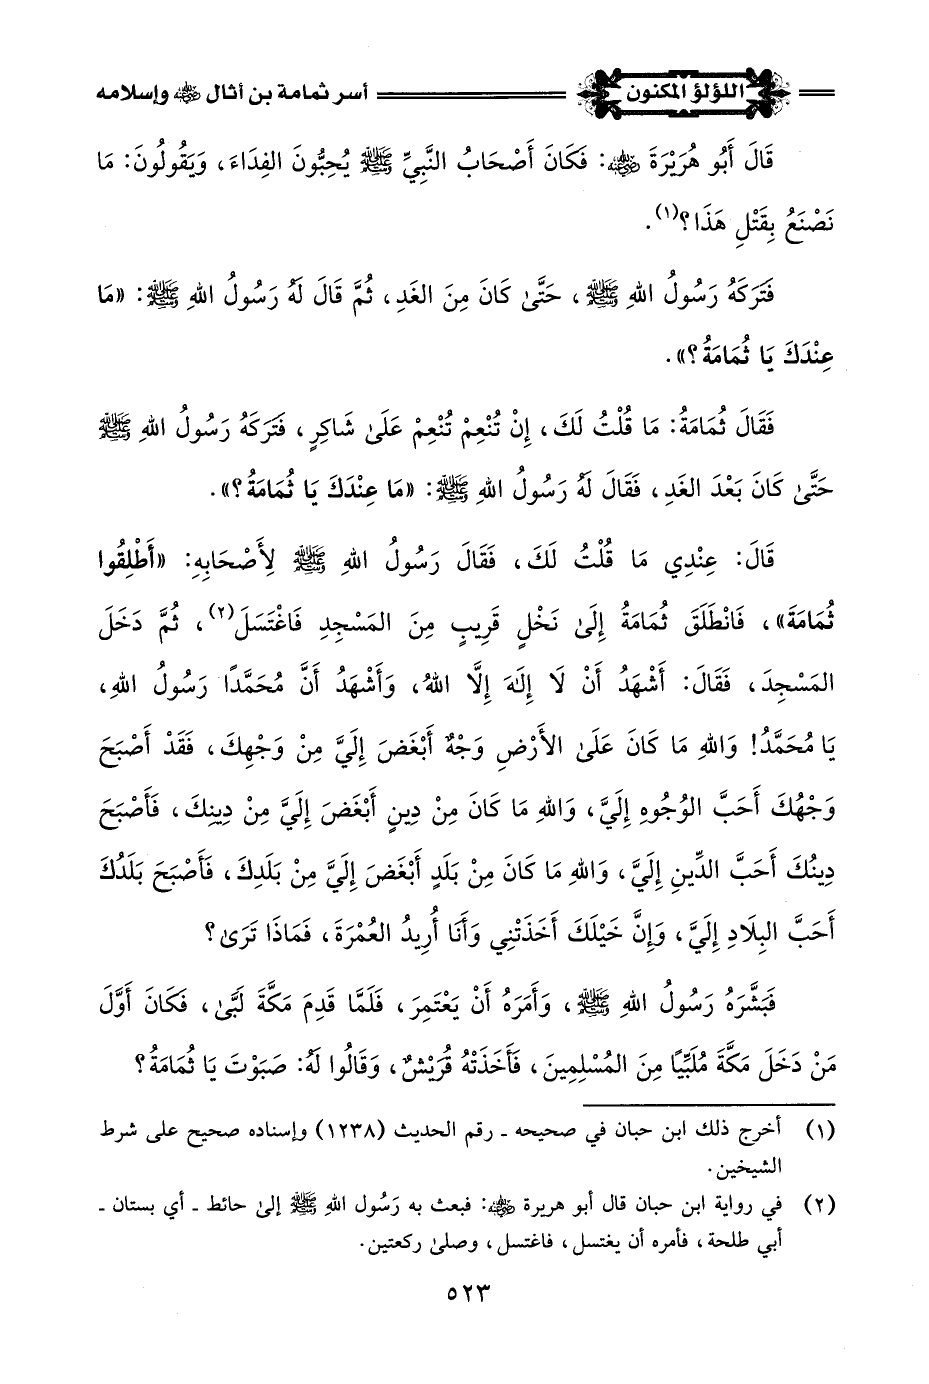 اللؤلؤ المكنون أسر ثمامة بن أثال ﵁ وإسلامه
قَالَ أَبُو هُرَيْرَةَ ﵁: فَكَانَ أَصْحَابُ النَّبِيِّ ﷺ يُحِبُّونَ الفِدَاءَ، وَيَقُولُونَ: مَا
نَصْنَعُ بِقَتْلِ هَذَا؟(١).
فَتَرَكَهُ رَسُولُ اللهِ ﷺ، حَتَّىٰ كَانَ مِنَ الغَدِ، ثُمَّ قَالَ لَهُ رَسُولُ اللهِ ﷺ: «مَا
عِنْدَكَ يَا ثُمَامَةُ؟».
فَقَالَ ثُمَامَةُ: مَا قُلْتُ لَكَ، إِنْ تُنْعِمْ تُنْعِمْ عَلَىٰ شَاكِرٍ، فَتَرَكَهُ رَسُولُ اللهِ ﷺ
حَتَّىٰ كَانَ بَعْدَ الغَدِ، فَقَالَ لَهُ رَسُولُ اللهِ ﷺ: «مَا عِنْدَكَ يَا ثُمَامَةُ؟».
قَالَ: عِنْدِي مَا قُلْتُ لَكَ، فَقَالَ رَسُولُ اللهِ ﷺ لِأَصْحَابِهِ: «أَطْلِقُوا
ثُمَامَةَ»، فَانْطَلَقَ ثُمَامَةُ إِلَىٰ نَخْلٍ قَرِيبٍ مِنَ المَسْجِدِ فَاغْتَسَلَ(٢)، ثُمَّ دَخَلَ
المَسْجِدَ، فَقَالَ: أَشْهَدُ أَنْ لَا إِلَهَ إِلَّا اللهُ، وَأَشْهَدُ أَنَّ مُحَمَّدًا رَسُولُ اللهِ،
يَا مُحَمَّدُ! وَاللهِ مَا كَانَ عَلَىٰ الأَرْضِ وَجْهٌ أَبْغَضَ إِلَيَّ مِنْ وَجْهِكَ، فَقَدْ أَصْبَحَ
وَجْهُكَ أَحَبَّ الوُجُوهِ إِلَيَّ، وَاللهِ مَا كَانَ مِنْ دِينٍ أَبْغَضَ إِلَيَّ مِنْ دِينِكَ، فَأَصْبَحَ
دِينُكَ أَحَبَّ الدِّينِ إِلَيَّ، وَاللهِ مَا كَانَ مِنْ بَلَدٍ أَبْغَضَ إِلَيَّ مِنْ بَلَدِكَ، فَأَصْبَحَ بَلَدُكَ
أَحَبَّ البِلَادِ إِلَيَّ، وَإِنَّ خَيْلَكَ أَخَذَتْنِي وَأَنَا أُرِيدُ العُمْرَةَ، فَمَاذَا تَرَىٰ؟
فَبَشَّرَهُ رَسُولُ اللهِ ﷺ، وَأَمَرَهُ أَنْ يَعْتَمِرَ، فَلَمَّا قَدِمَ مَكَّةَ لَبَّىٰ، فَكَانَ أَوَّلَ
مَنْ دَخَلَ مَكَّةَ مُلَبِّيًا مِنَ المُسْلِمِينَ، فَأَخَذَتْهُ قُرَيْشٌ، وَقَالُوا لَهُ: صَبَوْتَ يَا ثُمَامَةُ؟
(١) أخرج ذلك ابن حبان في صحيحه ـ رقم الحديث (١٢٣٨) وإسناده صحيح على شرط
الشيخين.
(٢) في رواية ابن حبان قال أبو هريرة ﵁: فبعث به رَسُول اللهِ ﷺ إلىٰ حائط ـ أي بستان ـ
أبي طلحة، فأمره أن يغتسل، فاغتسل، وصلىٰ ركعتين.
٥٢٣